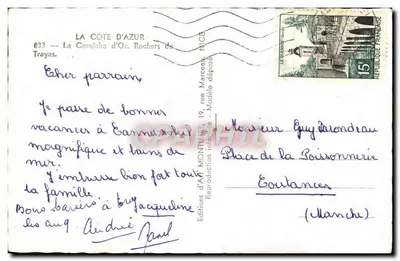 LA COTE D'AZUR
833 — La Corniche d'Or. Rochers du
Trayas.
Cher parrain
Je passe de bonnes
vacances à Cannes
magnifique et bains de
mer.
J'embrasse bien fort toute
la famille
Bons baisers à
Jacqueline
André
Monsieur Guy
Place de la Poissonnerie
Coutances
(Manche)
Editions d'Art MUNIER 19, rue Marceau, NICE
Reproduction Modèle déposé
15F
REPUBLIQUE FRANÇAISE